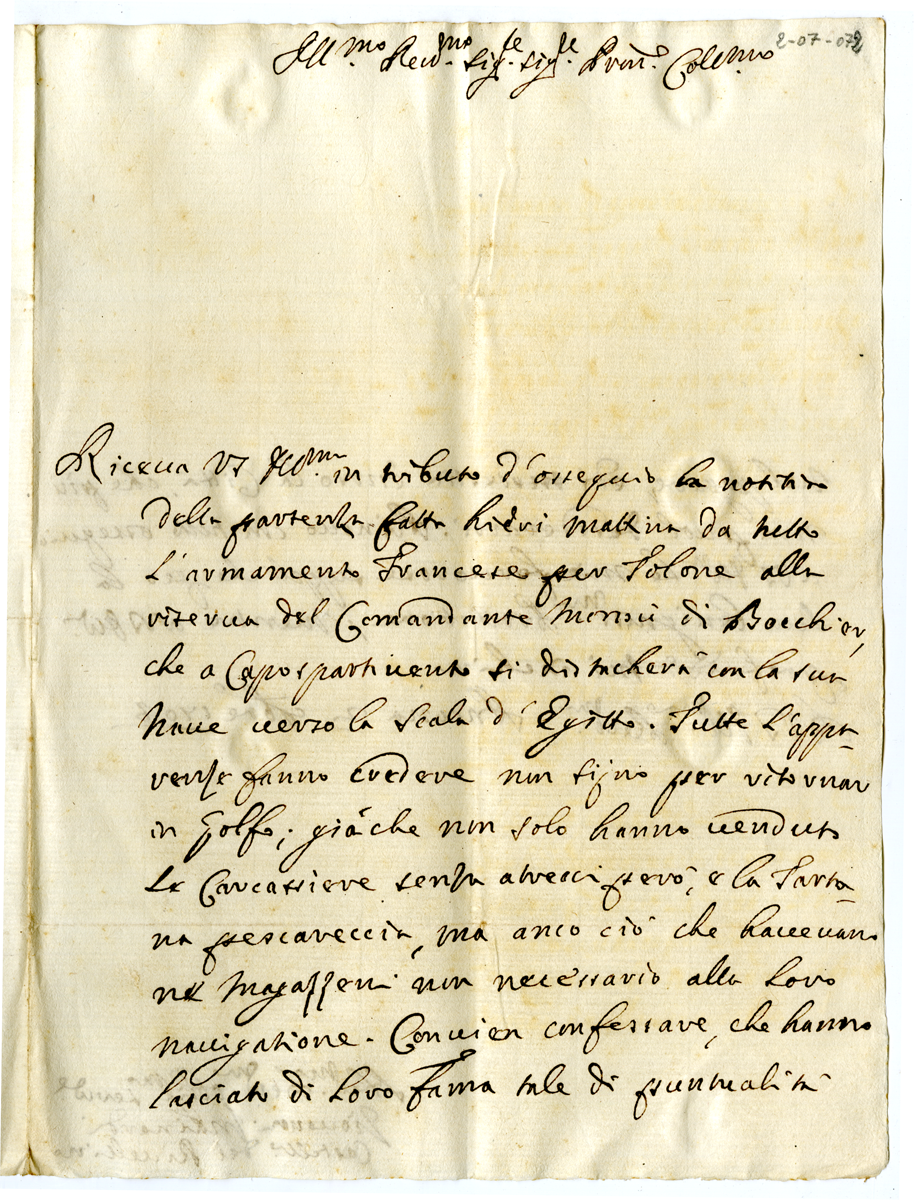 2-07-072
Ill.mo Reu.mo Sig.re Sig.re Pron. Col.mo
Riceua VS Ill.ma in tributo d'ossequio la notitia
della partenza fatta hieri mattina da tutto
L'armamento Francese per Tolone alla
riserua del Comandante Monsù di Bocchier,
che a Capospartiuento si distacherà con la sua
Naue uerso la Scala d'Egitto. Tutte l'appa-
renze fanno credere non sijno per ritornar
in Golfo; già che non solo hanno uenduto
Le Carcassiere senza atrecci però, e la Tarta-
na pescareccia, ma anco ciò che haueuano
ne Magazzeni non necessario alla Loro
nauigatione. Conuien confessare, che hanno
lasciato di Loro Fama tale di puntualità